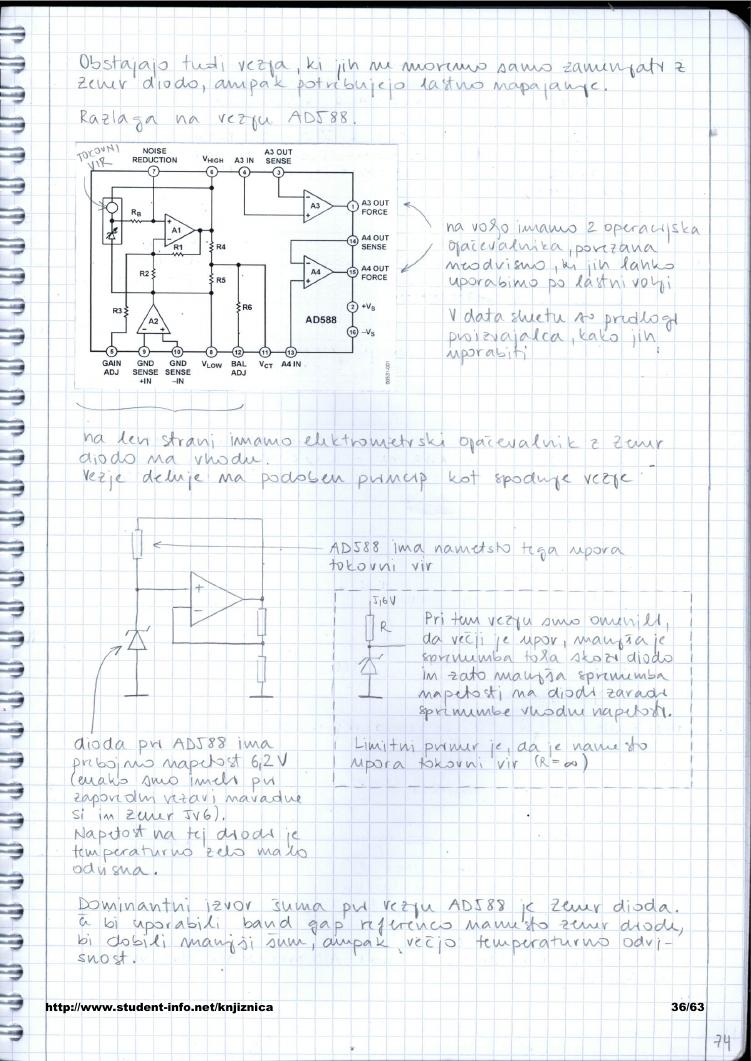 Obstajajo tudi vezja, ki jih ne moremo samo zamenjati z
zener diodo, ampak potrebujejo lastno napajanje.
Razlaga na vezju AD588.
TOKOVNI
VIR
NOISE
REDUCTION
VHIGH
A3 IN
A3 OUT
SENSE
7
6
4
3
RB
A1
R1
R4
A3
1
A3 OUT
FORCE
14
A4 OUT
SENSE
R2
R5
A4
15
A4 OUT
FORCE
R3
A2
R6
2
+VS
AD588
16
–VS
5
9
10
8
12
11
13
GAIN
ADJ
GND
SENSE
+IN
GND
SENSE
–IN
VLOW
BAL
ADJ
VCT
A4 IN
00531-001
na voljo imamo 2 operacijska
ojačevalnika, povezana
neodvisno, ki jih lahko
uporabimo po lastni volji
V data sheetu so predlogi
proizvajalca, kako jih
uporabiti
na levi strani imamo elektrometrski ojačevalnik z zener
diodo na vhodu.
Vezje deluje na podoben princip kot spodnje vezje
AD588 ima namesto tega upora
tokovni vir
5,6V
R
Pri tem vezju smo omenili,
da večji je upor, manjša je
sprememba toka skozi diodo
in zato manjša sprememba
napetosti na diodi zaradi
spremembe vhodne napetosti.
Limitni primer je, da je namesto
upora tokovni vir (R=∞)
dioda pri AD588 ima
prebojno napetost 6,2V
(enako smo imeli pri
zaporedni vezavi navadne
si in zener 5V6).
Napetost na tej diodi je
temperaturno zelo malo
odvisna.
Dominantni izvor šuma pri vezju AD588 je zener dioda.
če bi uporabili band gap referenco namesto zener diode,
bi dobili manjši šum, ampak večjo temperaturno odvi-
snost.
http://www.student-info.net/knjiznica
36/63
74